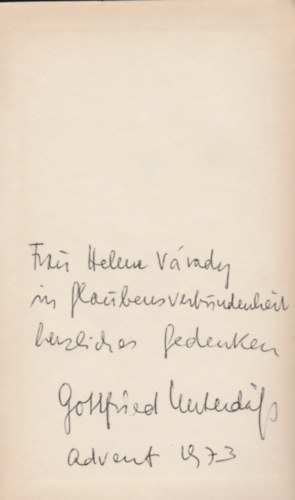 Frau Helene Várady
in Glaubensverbundenheit
herzliches Gedenken
Gottfried
Advent 1973